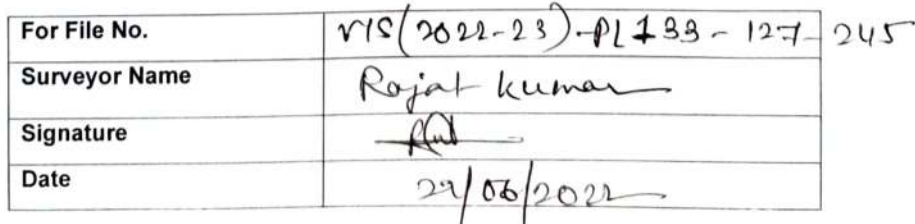 For File No. VIS(2022-23)-PL133-127-245
Surveyor Name Rajat Kumar
Signature
Date 22/06/2022